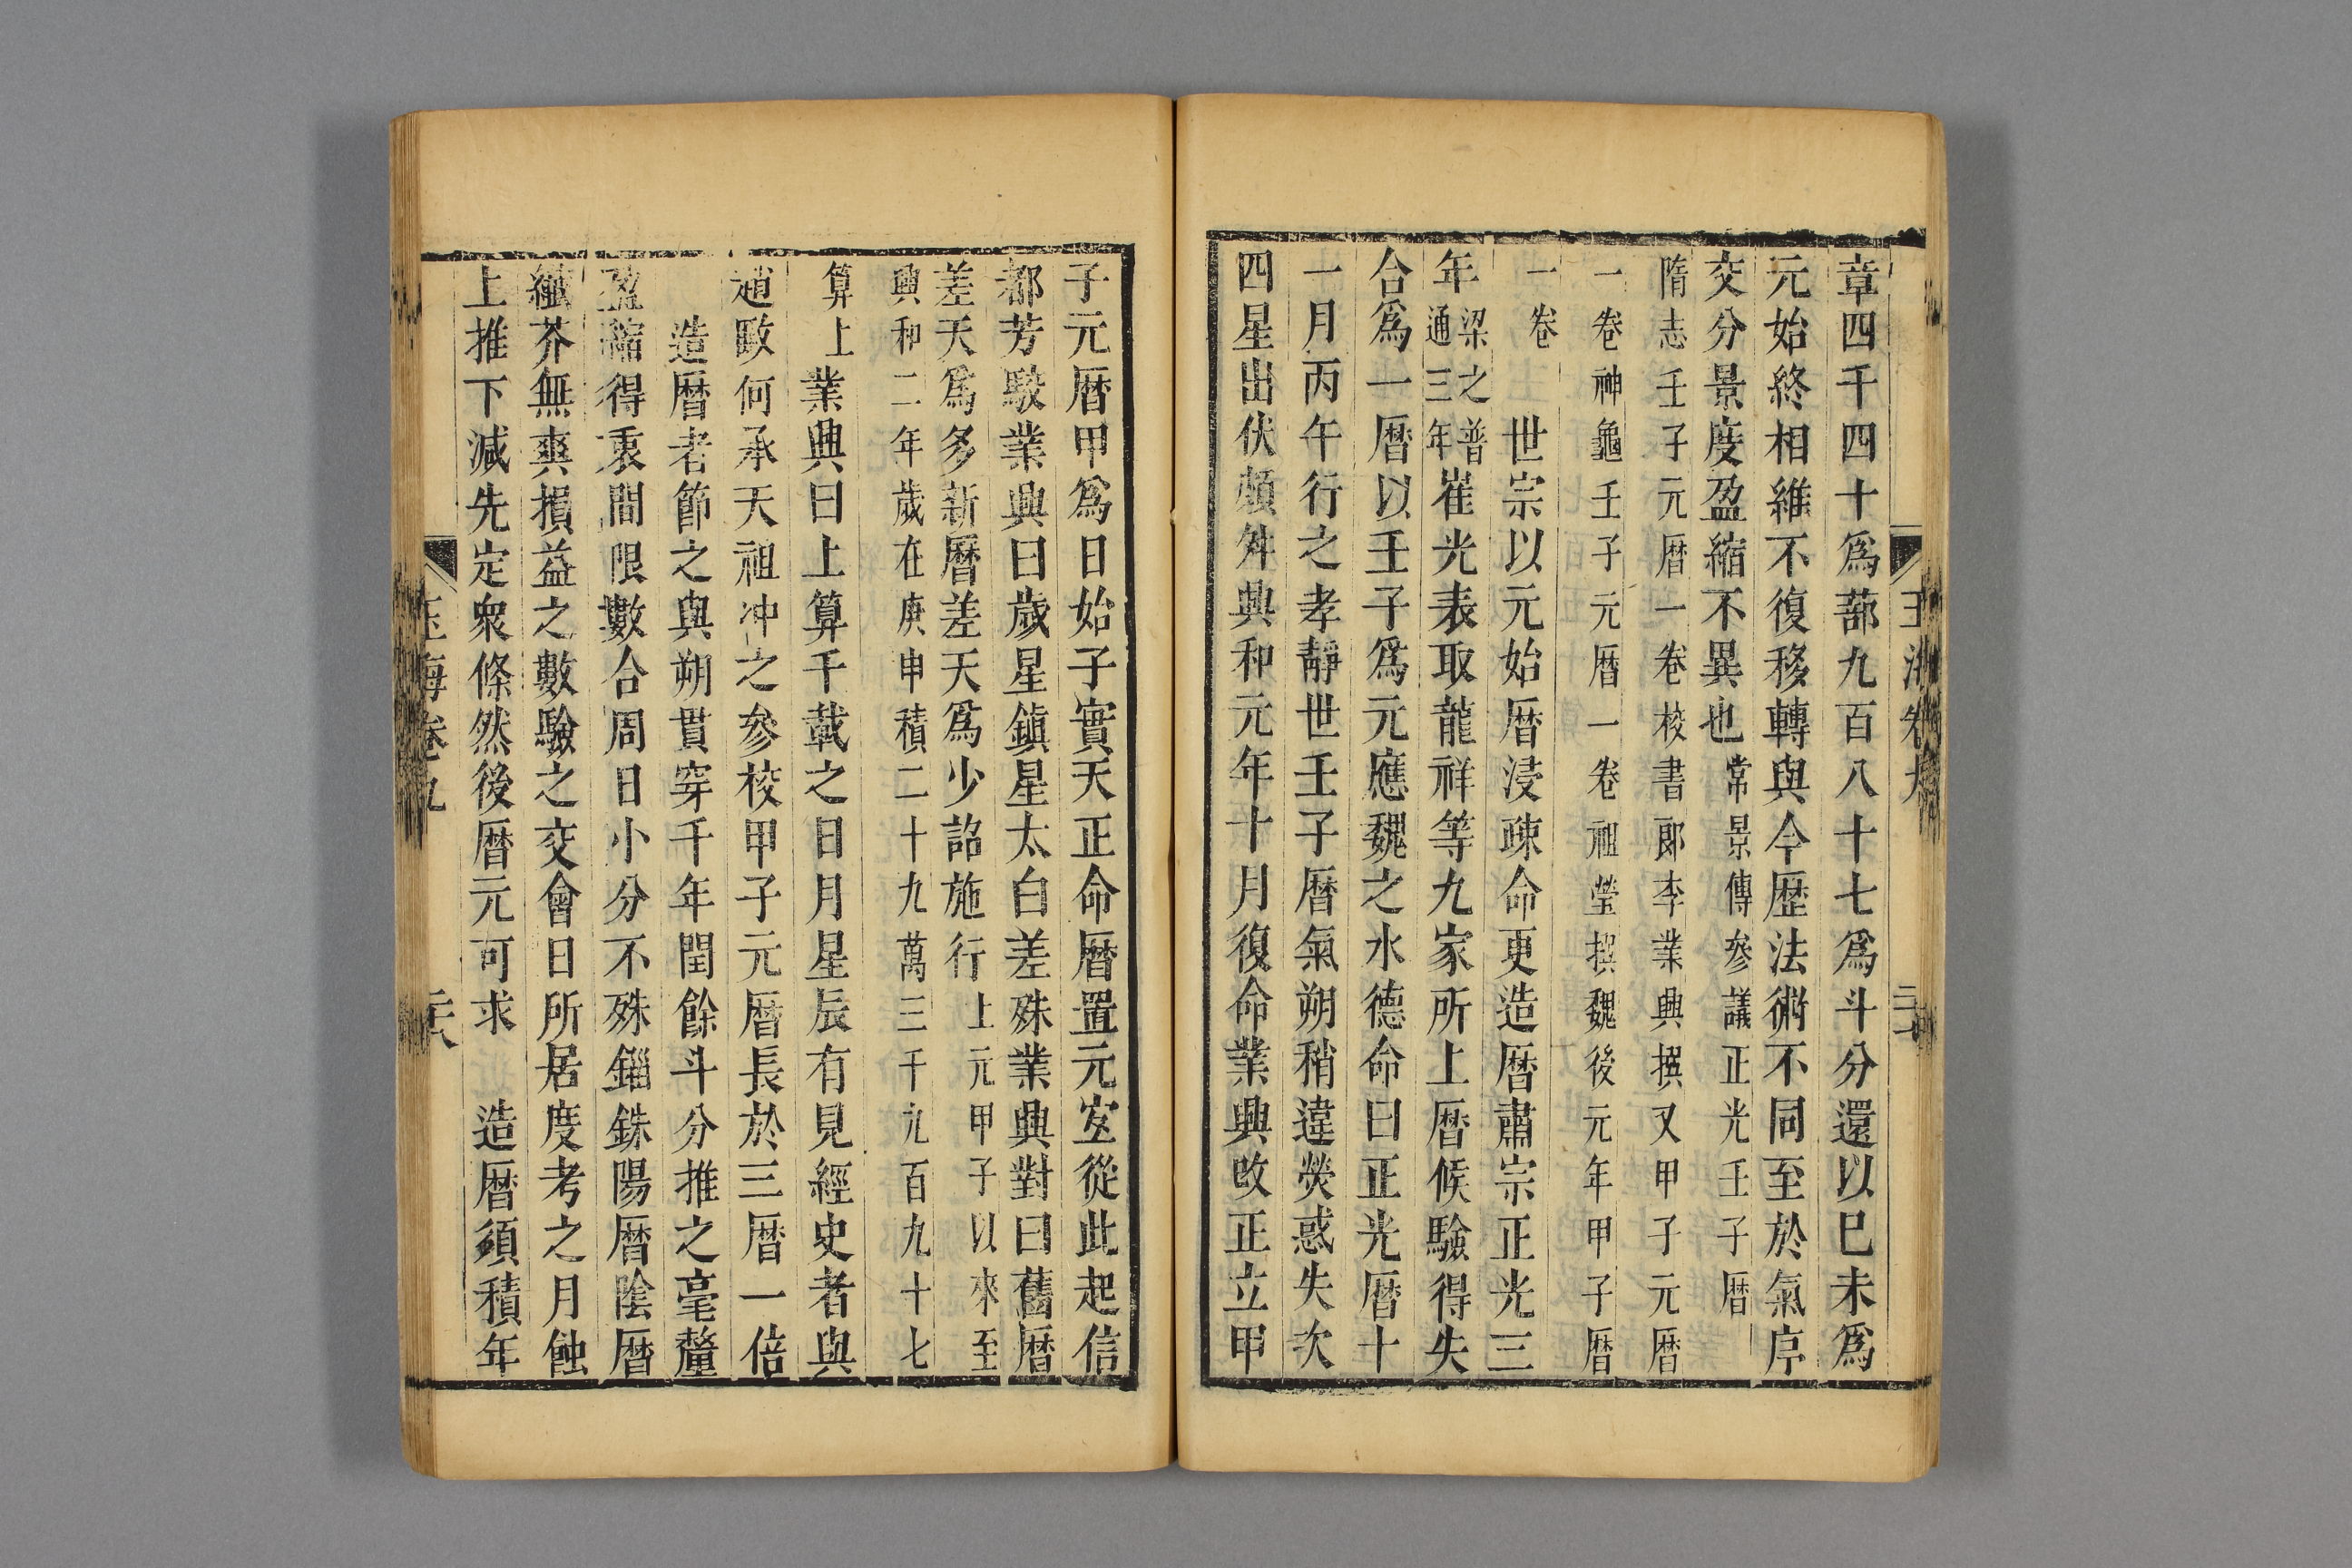 章四千四十爲蔀九百八十七爲斗分還以巳未爲
元始終相維不復移轉與今歷法術不同至於氣序
交分景度盈縮不異也常景傳參議正光壬子曆
隋志壬子元曆一卷校書郎李業興撰又甲子元曆
一卷神龜壬子元曆一卷祖瑩撰魏後元年甲子曆
一卷
世宗以元始曆浸疎命更造曆肅宗正光三
年梁之普通三年崔光表取龍祥等九家所上曆候驗得失
合爲一曆以壬子爲元應魏之水德命曰正光曆十
一月丙午行之孝靜世壬子曆氣朔稍違熒惑失次
四星出伏頗舛興和元年十月復命業興改正立甲
子元曆甲爲日始子實天正命曆置元宜從此起信
都芳駮業興曰歲星鎭星太白差殊業興對曰舊曆
差天爲多新曆差天爲少詔施行上元甲子以來至
興和二年歲在庚申積二十九萬三千九百九十七
算上業興曰上算千載之日月星辰有見經史者與
趙𢾺何承天祖冲之參校甲子元曆長於三曆一倍
造曆者節之與朔貫穿千年閏餘斗分推之毫釐
盈縮得衷間限數合周日小分不殊錙銖陽曆陰曆
纎芥無爽損益之數驗之交會日所居度考之月蝕
上推下減先定衆條然後曆元可求　造曆須積年
玉海卷九
二十八